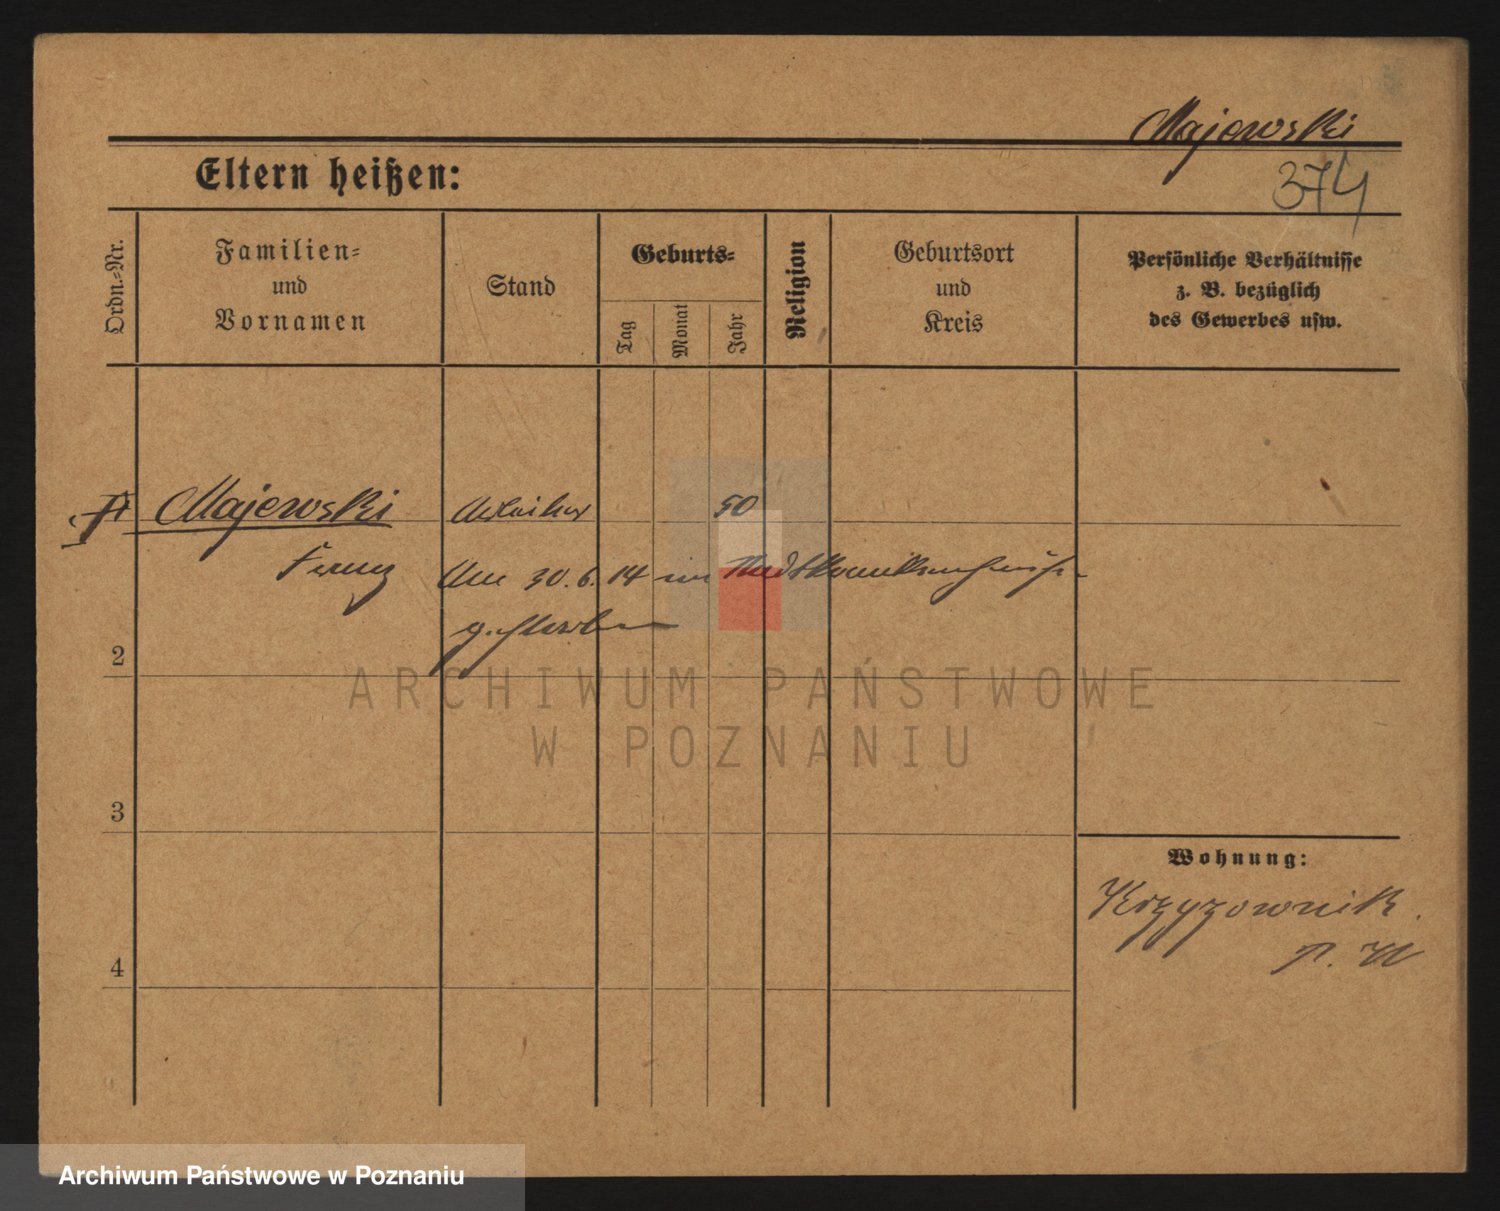 Majewski
374
Eltern heißen:
Ordn.-Nr.
Familien-
und
Vornamen
Stand
Geburts-
Tag
Monat
Jahr
Religion
Geburtsort
und
Kreis
Persönliche Verhältnisse
z. B. bezüglich
des Gewerbes usw.
Majewski Arbeiter 50
Franz Am 30.6.14 im Stadtkrankenhause
gestorben
2
3
4
Wohnung:
Krzyzownik.
ARCHIWUM PAŃSTWOWE
W POZNANIU
Archiwum Państwowe w Poznaniu